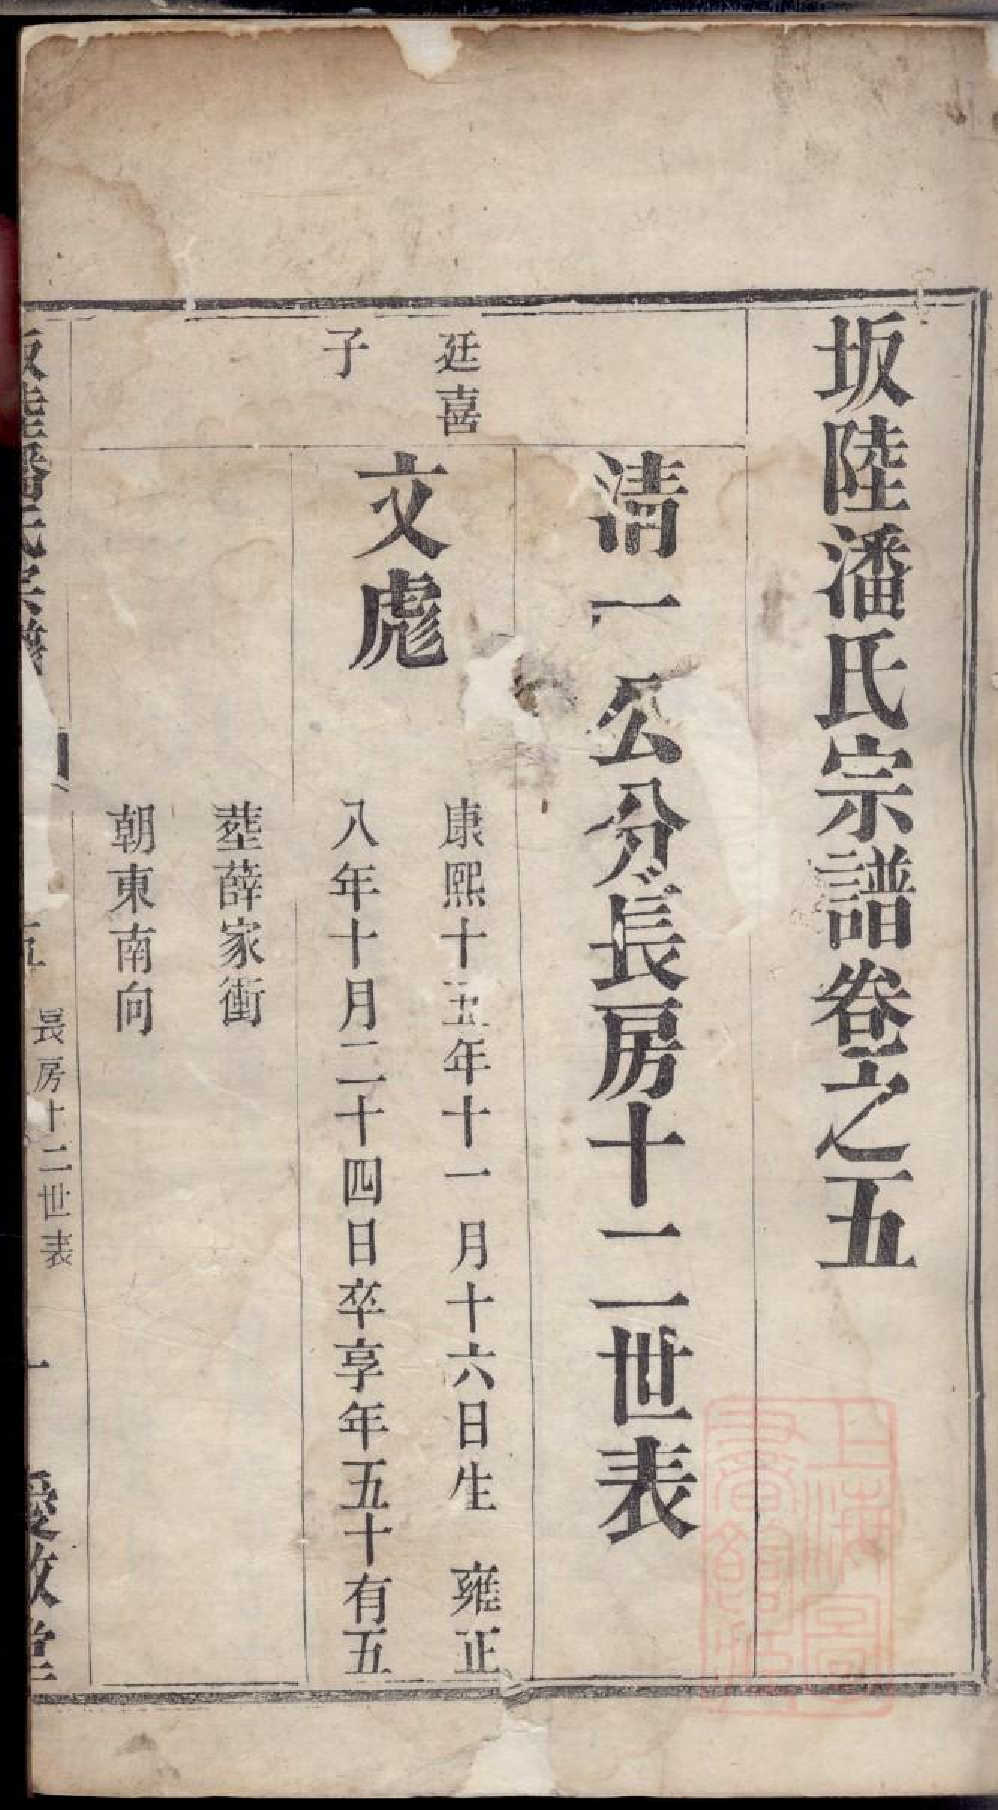 坂陸潘氏宗譜卷之五
清一公分長房十二世表
廷喜
子
文彪
康熙十五年十一月十六日生 雍正
八年十月二十四日卒享年五十有五
葬薛家衝
朝東南向
坂陸潘氏宗譜
五 長房十二世表 一 愛敬堂
上海圖書館藏